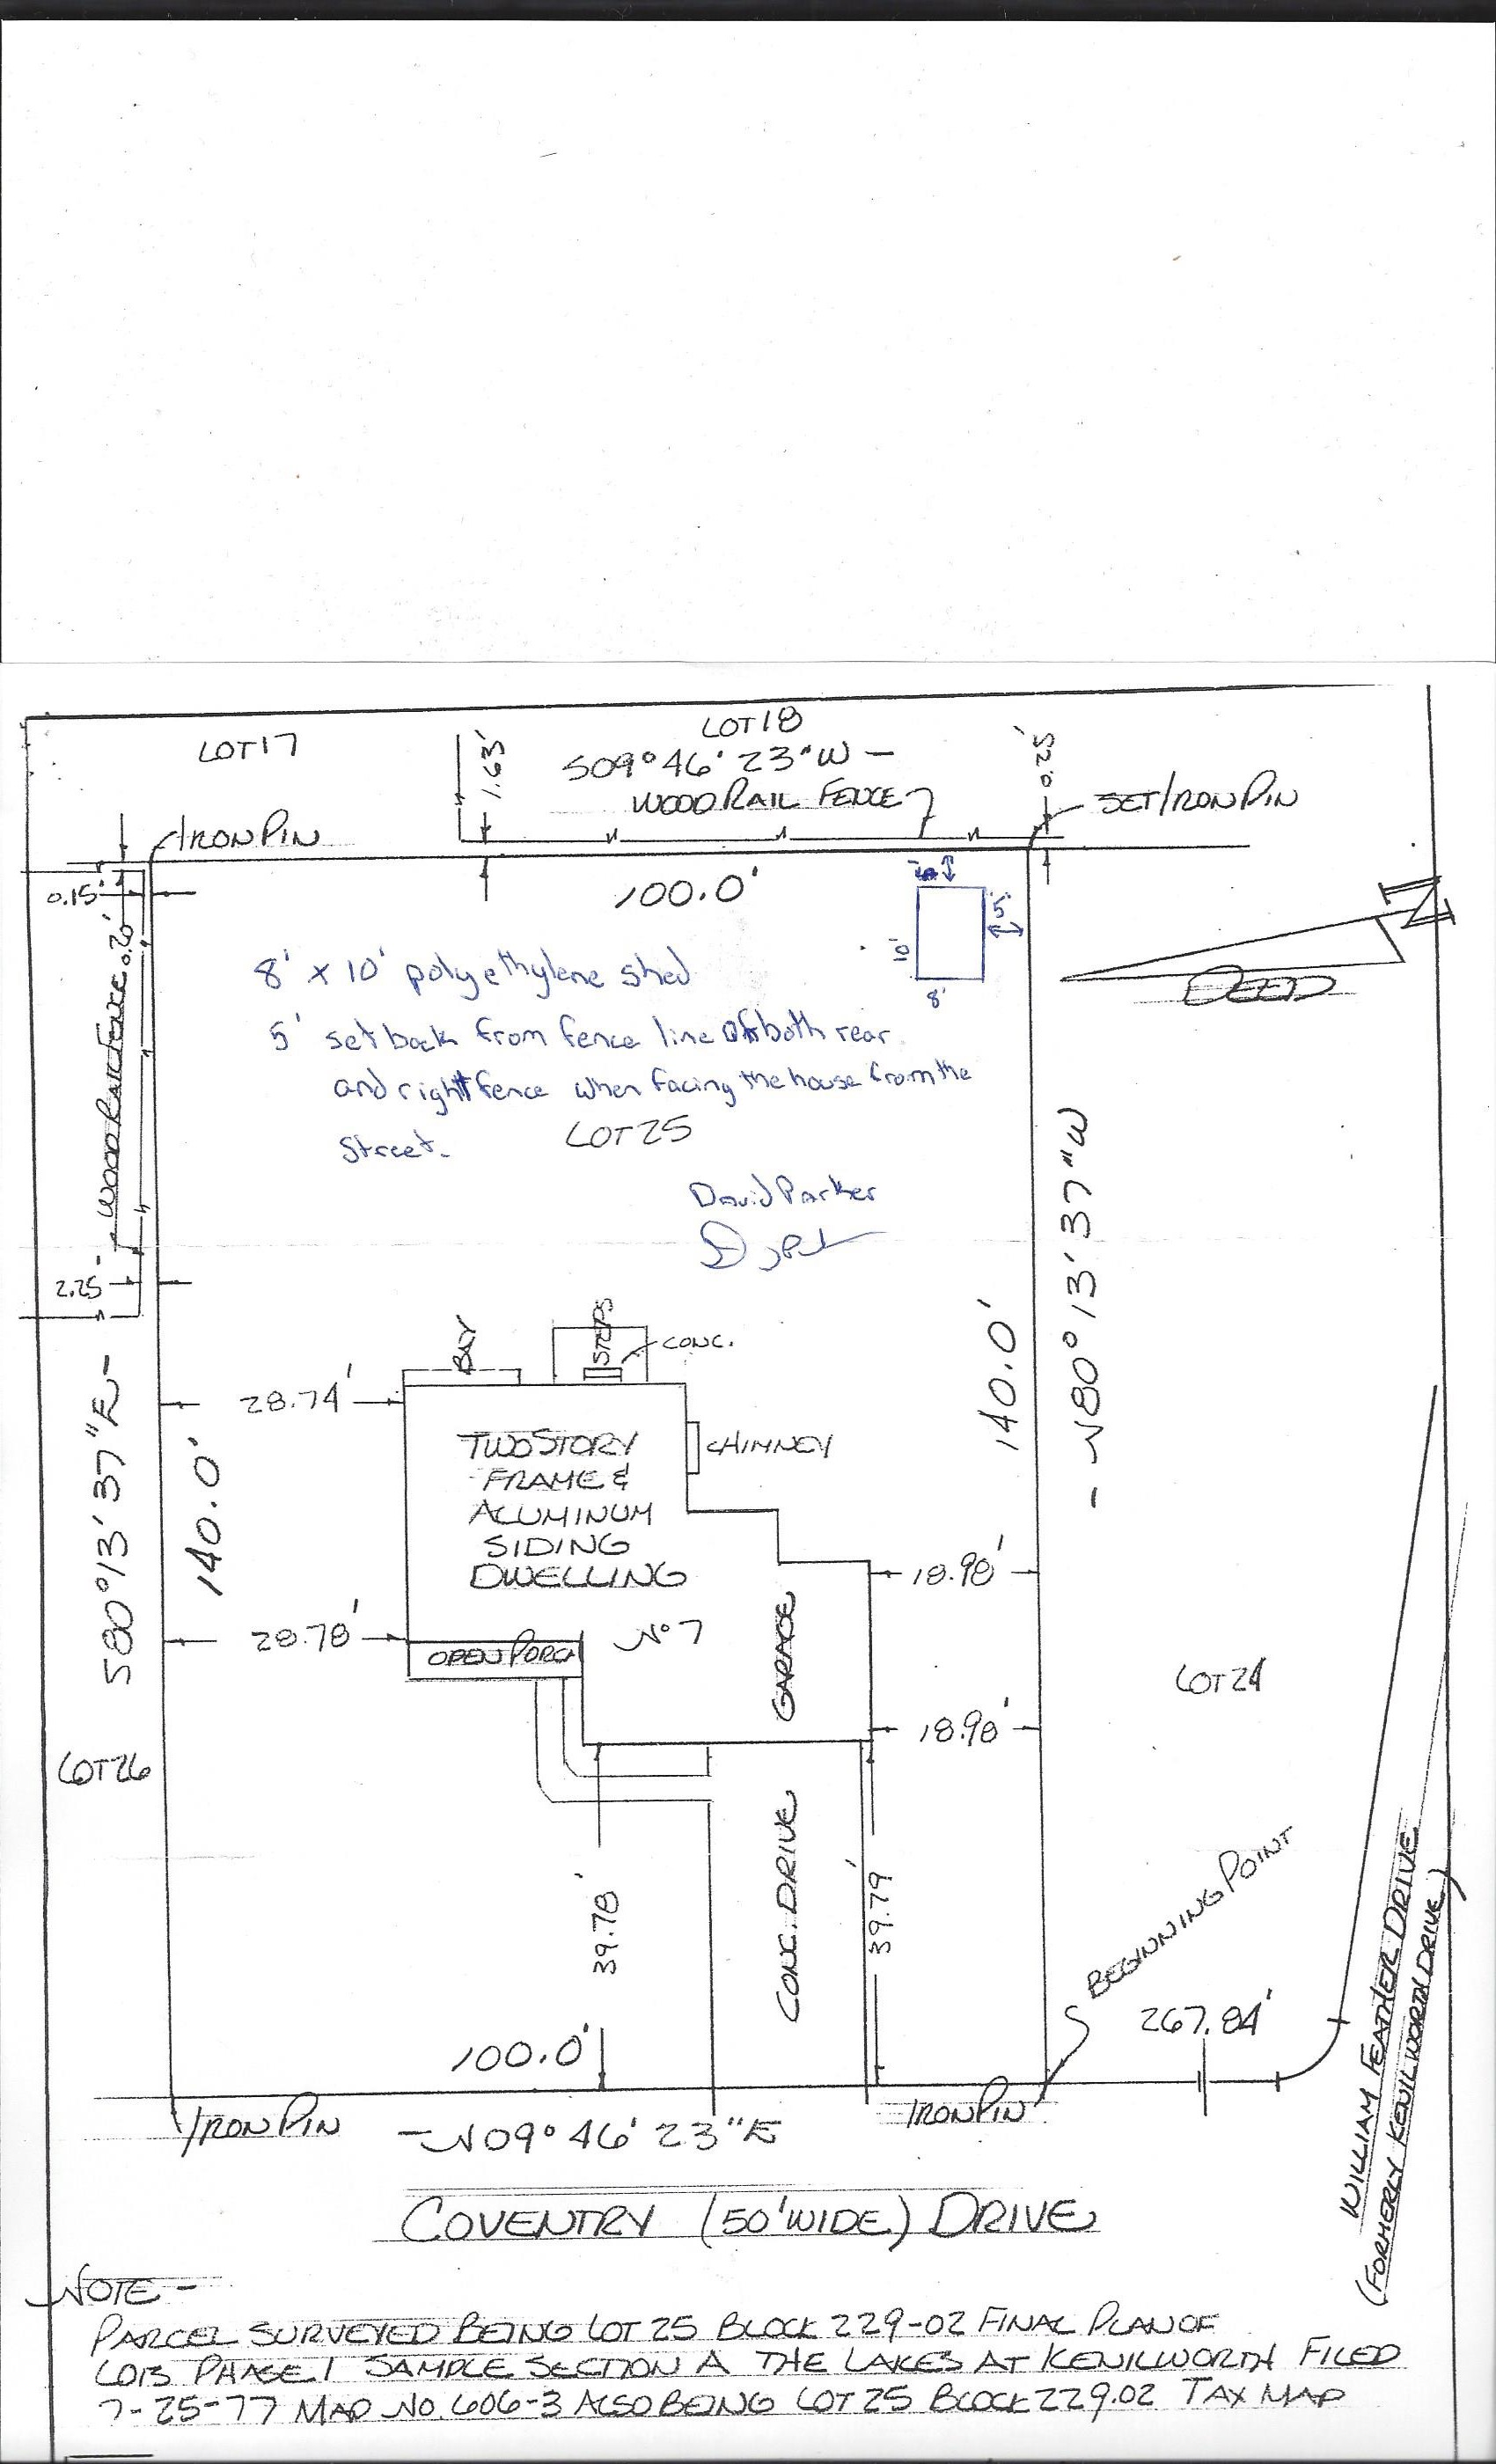 LOT 17
LOT 18
S09°46'23"W -
WOOD RAIL FENCE
1.63'
0.25'
IRON PIN
SET IRON PIN
0.15'
0.20'
100.0'
5'
10'
8'
DEED
WOOD RAIL FENCE
8' x 10' polyethylene shed
5' setback from fence line of both rear
and right fence when facing the house from the
street.
LOT 25
David Parker
2.25'
S80°13'37"E -
140.0'
140.0'
- N80°13'37"W
BAY
STEPS
CONC.
28.74'
TWO STORY
FRAME &
ALUMINUM
SIDING
DWELLING
CHIMNEY
18.98'
28.78'
OPEN PORCH
No 7
GARAGE
18.98'
LOT 24
LOT 26
39.78'
CONC. DRIVE
39.79'
BEGINNING POINT
267.84'
WILLIAM FEATHER DRIVE
(FORMERLY KENILWORTH DRIVE)
100.0'
IRON PIN
- N09°46'23"E
IRON PIN
COVENTRY (50' WIDE) DRIVE
NOTE -
PARCEL SURVEYED BEING LOT 25 BLOCK 229-02 FINAL PLAN OF
LOTS PHASE 1 SAMPLE SECTION A THE LAKES AT KENILWORTH FILED
7-25-77 MAP NO. 606-3 ALSO BEING LOT 25 BLOCK 229.02 TAX MAP